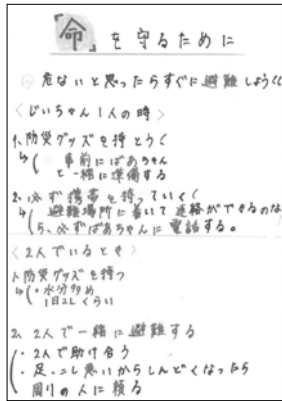 「命」を守るために
◎ 危ないと思ったらすぐに避難しよう!!
〈じいちゃん1人の時〉
1. 防災グッズを持とう!
↳( 事前にばあちゃん
と一緒に準備する
2. 必ず携帯を持っていく
↳( 避難場所に着いて連絡ができるのな
ら、必ずばあちゃんに電話する。
〈2人でいるとき〉
1. 防災グッズを持つ
↳(・水分多め
1日2Lくらい
2. 2人で一緒に避難する
・2人で助け合う
・足、こし悪いからしんどくなったら
周りの人に頼る